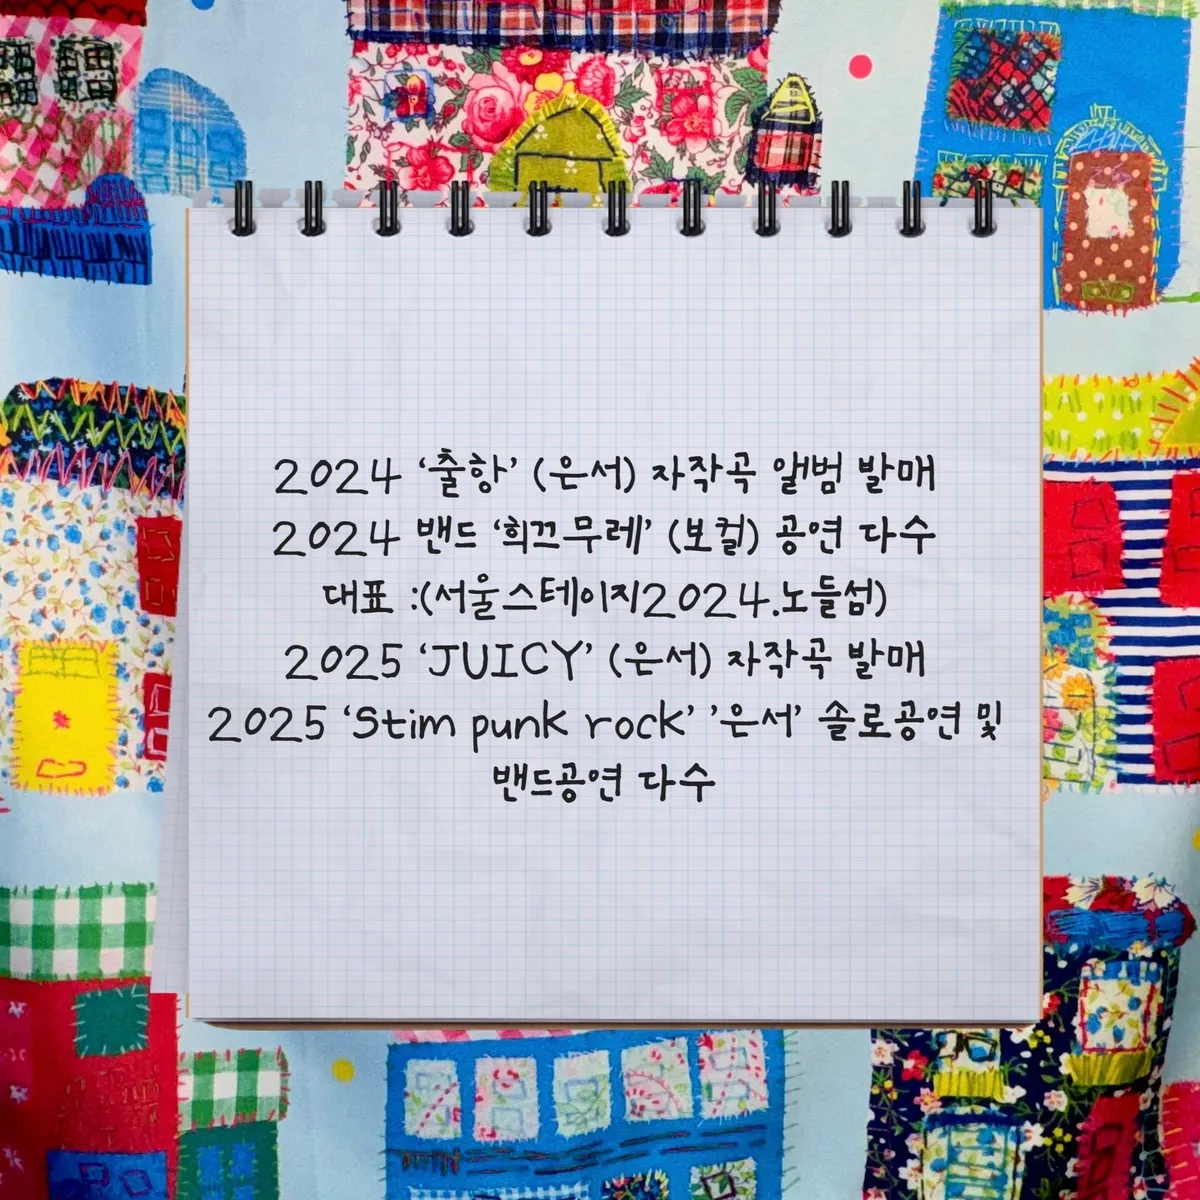 2024 ‘출항’ (은서) 자작곡 앨범 발매
2024 밴드 ‘희끄무레’ (보컬) 공연 다수
대표 :(서울스테이지2024.노들섬)
2025 ‘JUICY’ (은서) 자작곡 발매
2025 ‘Stim punk rock’ ’은서’ 솔로공연 및
밴드공연 다수